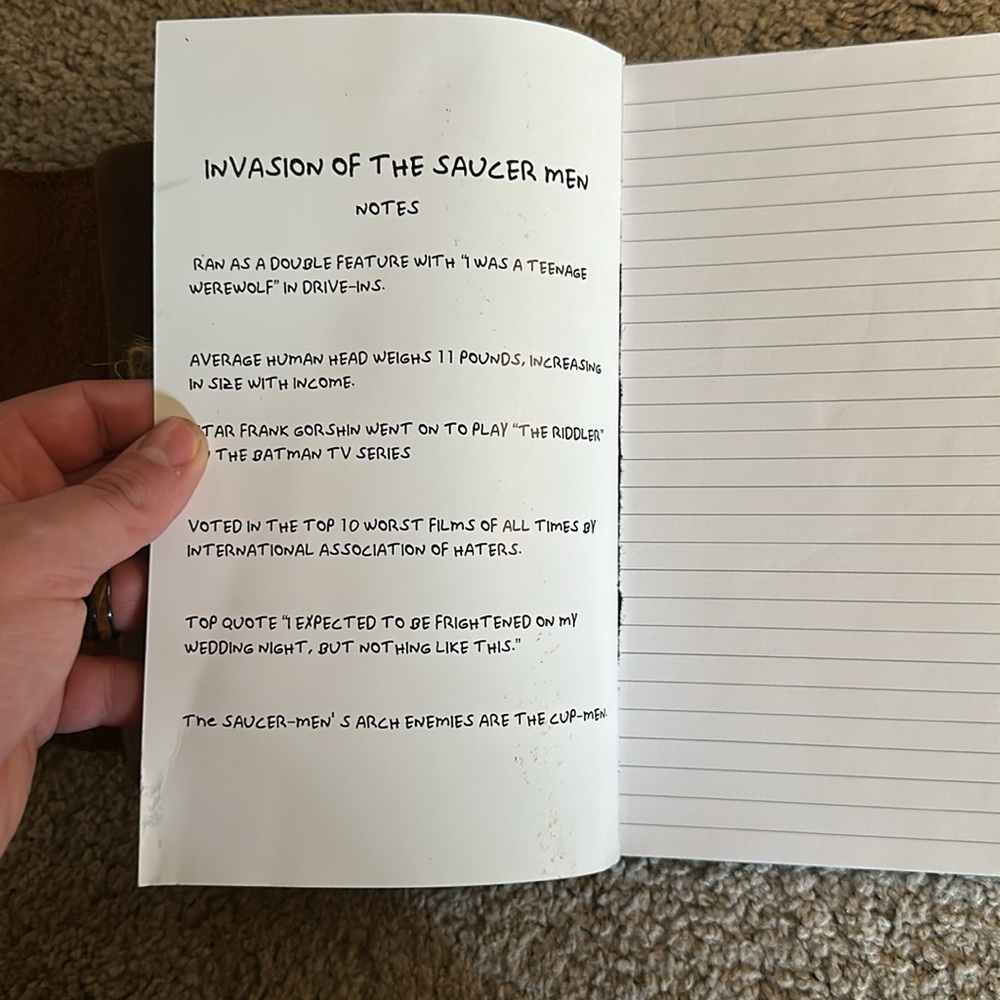 INVASION OF THE SAUCER MEN
NOTES
RAN AS A DOUBLE FEATURE WITH "I WAS A TEENAGE
WEREWOLF" IN DRIVE-INS.
AVERAGE HUMAN HEAD WEIGHS 11 POUNDS, INCREASING
IN SIZE WITH INCOME.
TAR FRANK GORSHIN WENT ON TO PLAY "THE RIDDLER"
THE BATMAN TV SERIES
VOTED IN THE TOP 10 WORST FILMS OF ALL TIMES BY
INTERNATIONAL ASSOCIATION OF HATERS.
TOP QUOTE "I EXPECTED TO BE FRIGHTENED ON MY
WEDDING NIGHT, BUT NOTHING LIKE THIS."
The SAUCER-MEN' S ARCH ENEMIES ARE THE CUP-MEN.